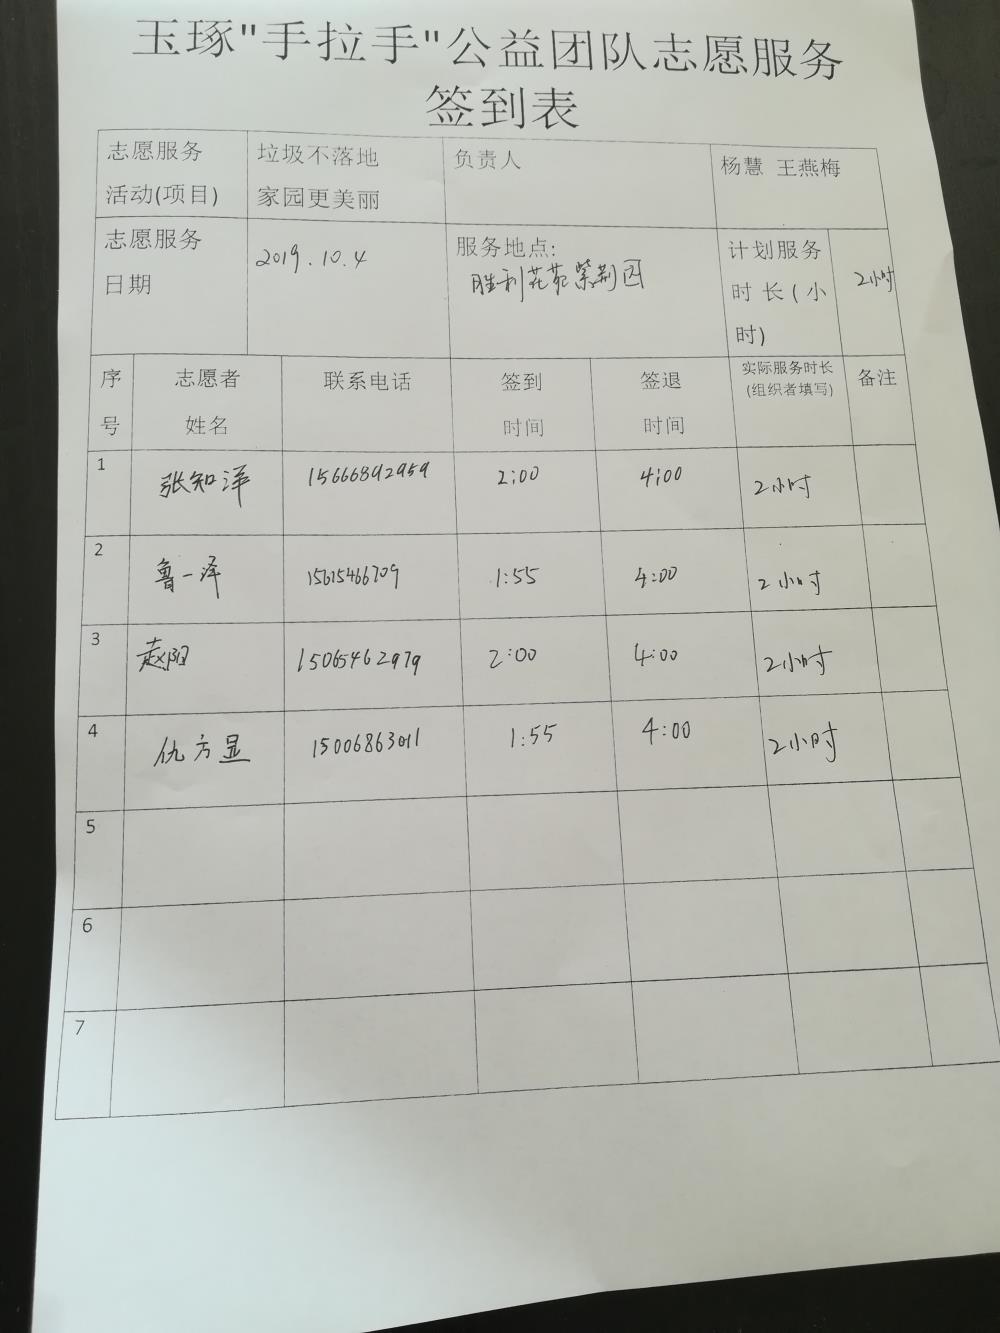 玉琢"手拉手"公益团队志愿服务
签到表
志愿服务
活动(项目)
垃圾不落地
家园更美丽
负责人
杨慧 王燕梅
志愿服务
日期
2019.10.4
服务地点:
胜利花苑紫荆园
计划服务
时长(小
时)
2小时
序
号
志愿者
姓名
联系电话
签到
时间
签退
时间
实际服务时长
(组织者填写)
备注
1 张知洋 15666892959 2:00 4:00 2小时
2 鲁一泽 15615466709 1:55 4:00 2小时
3 赵阳 15065462979 2:00 4:00 2小时
4 仇方显 15006863011 1:55 4:00 2小时
5
6
7